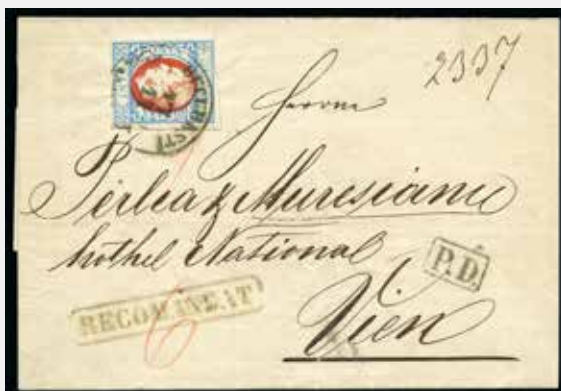 2337
Herrn
Perlea & Muresianu
hôthel National
P.D.
RECOMINDAT
6
Wien